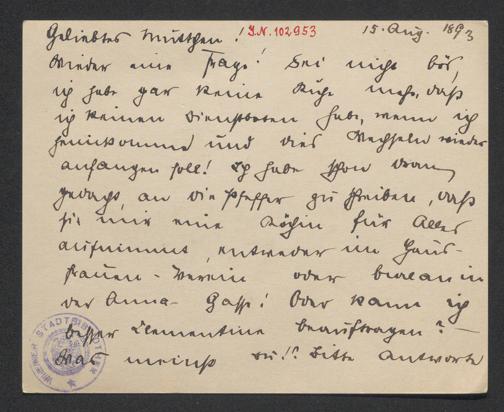 Geliebtes Mutterchen! I.N. 102953 15. Aug. 1893
Wieder eine Frage! Sei nicht bös,
ich habe gar keine Ruhe mehr, daß
ich keinen Dienstboten habe, wenn ich
heimkomme und dies Wechseln wieder
anfangen soll! Ich habe schon daran
gedacht, an die Pfeffer zu schreiben, daß
sie mir eine Köchin für Alles
aufnimmt, entweder im Haus-
frauen-Verein oder in
der Anna-Gasse! Oder kann ich
besser Clementine beauftragen? —
Was meinst du!? Bitte antworte
WIENER STADTBIBLIOTHEK